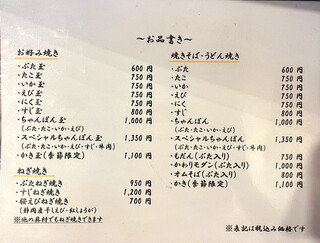 ～お品書き～
お好み焼き
・ぶた玉 600円
・たこ玉 750円
・いか玉 750円
・えび玉 750円
・にく玉 750円
・すじ玉 800円
・ちゃんぽん玉 1,000円
(ぶた・たこ・いか・えび)
・スペシャルちゃんぽん玉 1,350円
(ぶた・たこ・いか・えび・すじ・牛肉)
・かき玉(季節限定) 1,100円
ねぎ焼き
・ぶたねぎ焼き 950円
・すじねぎ焼き 1,200円
・桜えびねぎ焼き 700円
(静岡産干しえび・紅しょうが)
※他の具材でもねぎ焼きできます
焼きそば・うどん焼き
・ぶた 600円
・たこ 750円
・いか 750円
・えび 750円
・にく 750円
・すじ 800円
・ちゃんぽん 1,000円
(ぶた・たこ・いか・えび)
・スペシャルちゃんぽん 1,350円
(ぶた・たこ・いか・えび・すじ・牛肉)
・もだん(ぶた入り) 750円
・かわりモダン(ぶた入り) 1,000円
・オムそば(ぶた入り) 800円
・かき(季節限定) 1,100円
※表記は税込み価格です